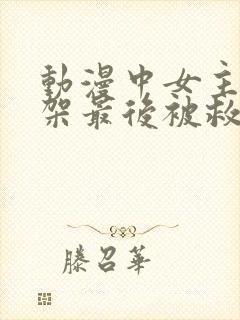 動漫中女主
架最後被救
滕召華